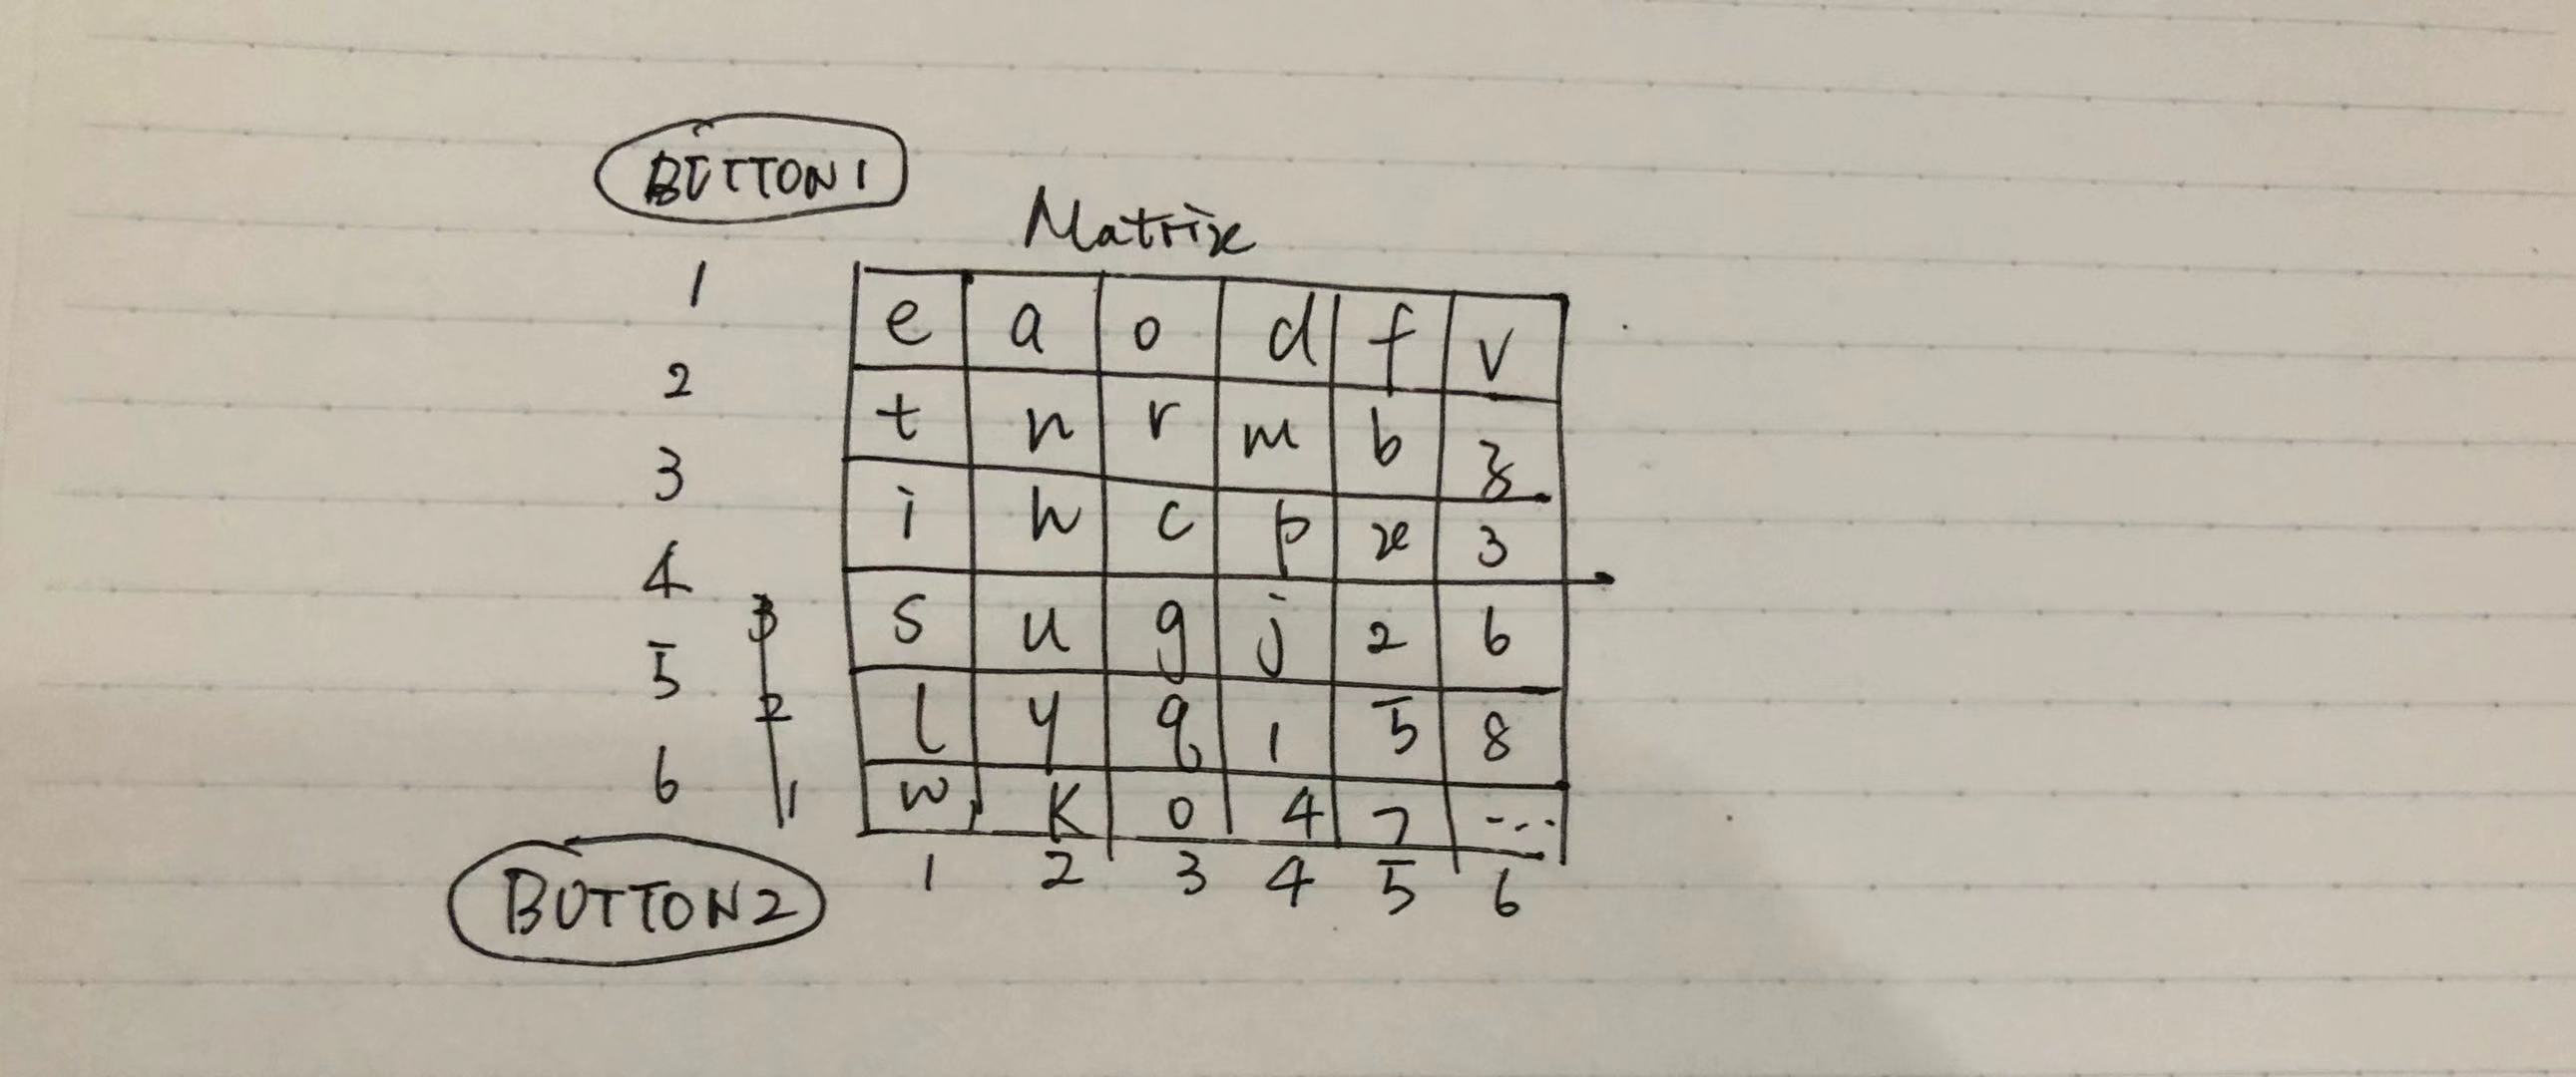 BUTTON1
Matrix
1
e a o d f v
2
t n r m b z
3
i h c p x 3
4
s u g j 2 6
3
5
l y q 1 5 8
2
6
w k 0 4 7 ...
1
1 2 3 4 5 6
BUTTON2